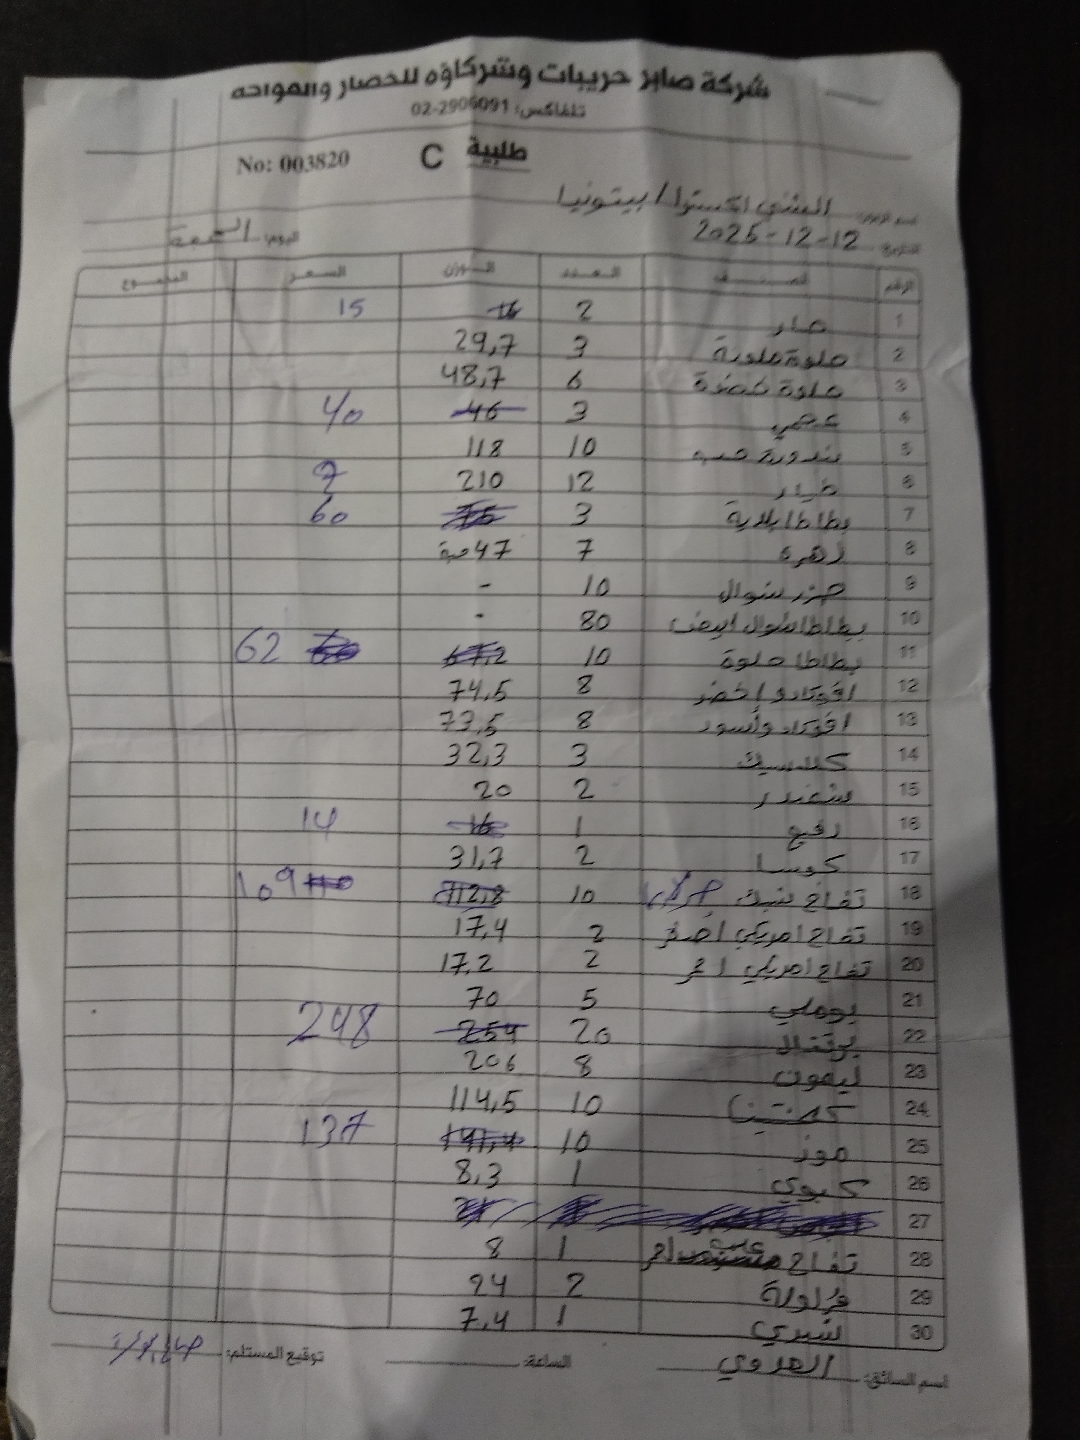 شركة صابر حريبات وشركاؤه للخضار والفواكه
تلفاكس: 02-2906091
No: 003820 C طلبية
الشني اكسترا / بيتونيا
التاريخ: 12-12-2025 اليوم: الجمعة
الرقم الصنف العدد الوزن السعر المجموع
1 2 15
2 حلوة ملونة 3 29,7
3 حلوة خضرة 6 48,7
4 عجمي 3 46 40
5 بندورة حبه 10 118
6 خيار 12 210
7 بطاطا بلدية 3 60
8 زهره 7 47 حبة
9 جزر شوال 10 -
10 بطاطا شوال ابيض 80 -
11 بطاطا حلوة 10 67,2 62
12 افوكادو اخضر 8 74,5
13 افوكادو أسود 8 73,5
14 كلاسيك 3 32,3
15 شمندر 2 20
16 رفيع 1 16 14
17 كوسا 2 31,7
18 تفاح بنيك 10 112,8 109
19 تفاح امريكي اصفر 2 17,4
20 تفاح امريكي احمر 2 17,2
21 بوملي 5 70
22 برتقال 20 254 248
23 ليمون 8 206
24 كلمنتينا 10 114,5
25 موز 10 141,4 137
26 كيوي 1 8,3
27
28 تفاح 1 8
29 فراولة 2 24
30 شيري 1 7,4
اسم السائق: الهروي الساعة: توقيع المستلم: